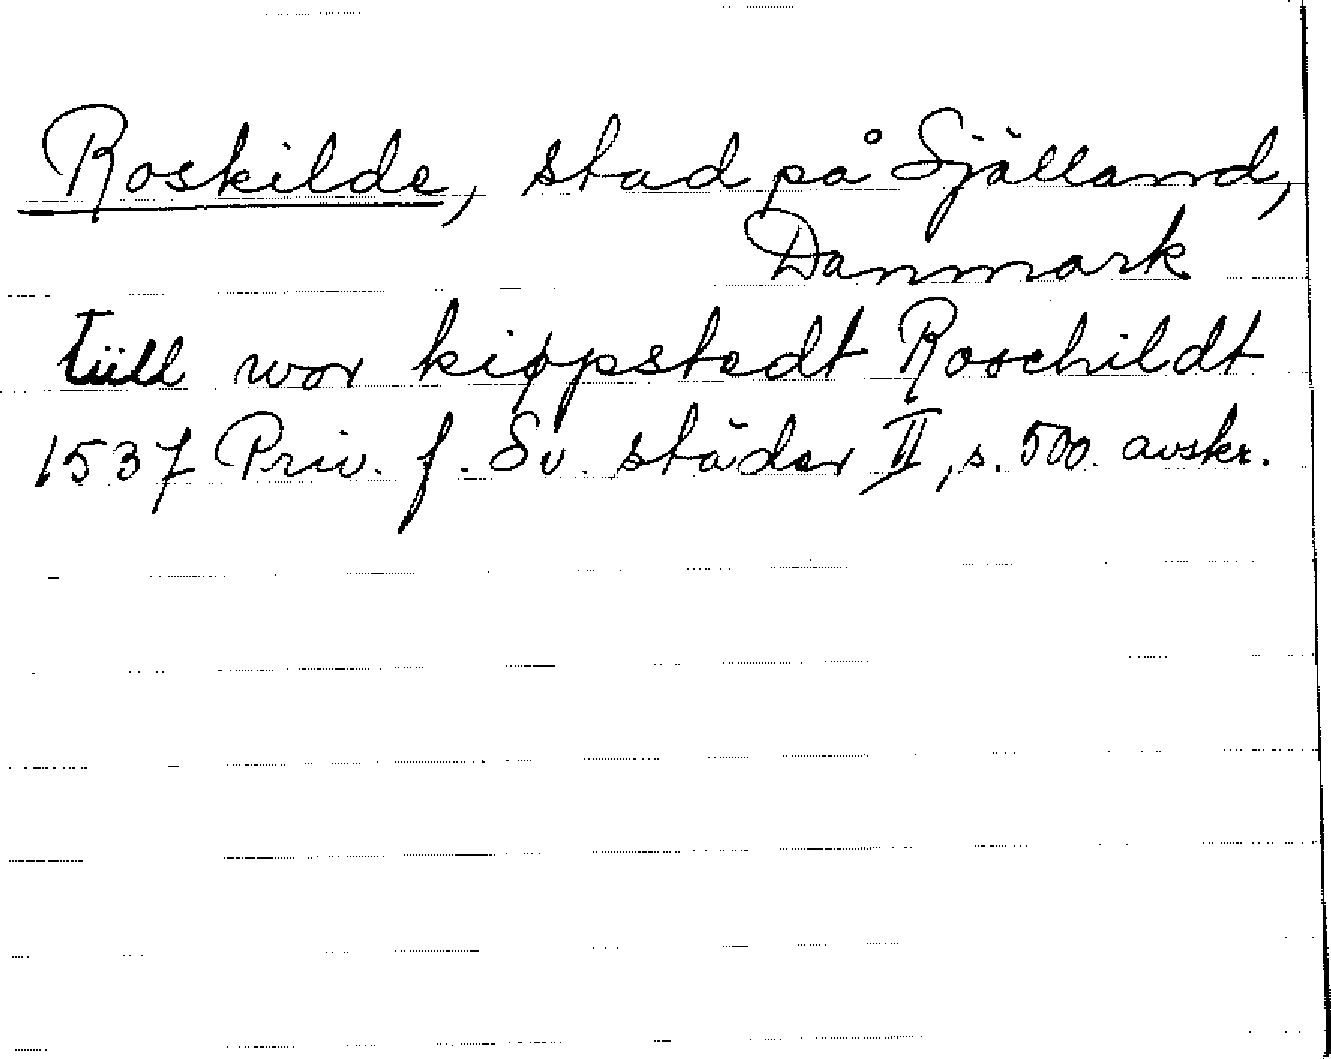 Roskilde, stad på Själland,
Danmark
tiill wor kiøpstedt Roschildt
1537 Priv. f. Sv. städer II, s. 500. avskr.